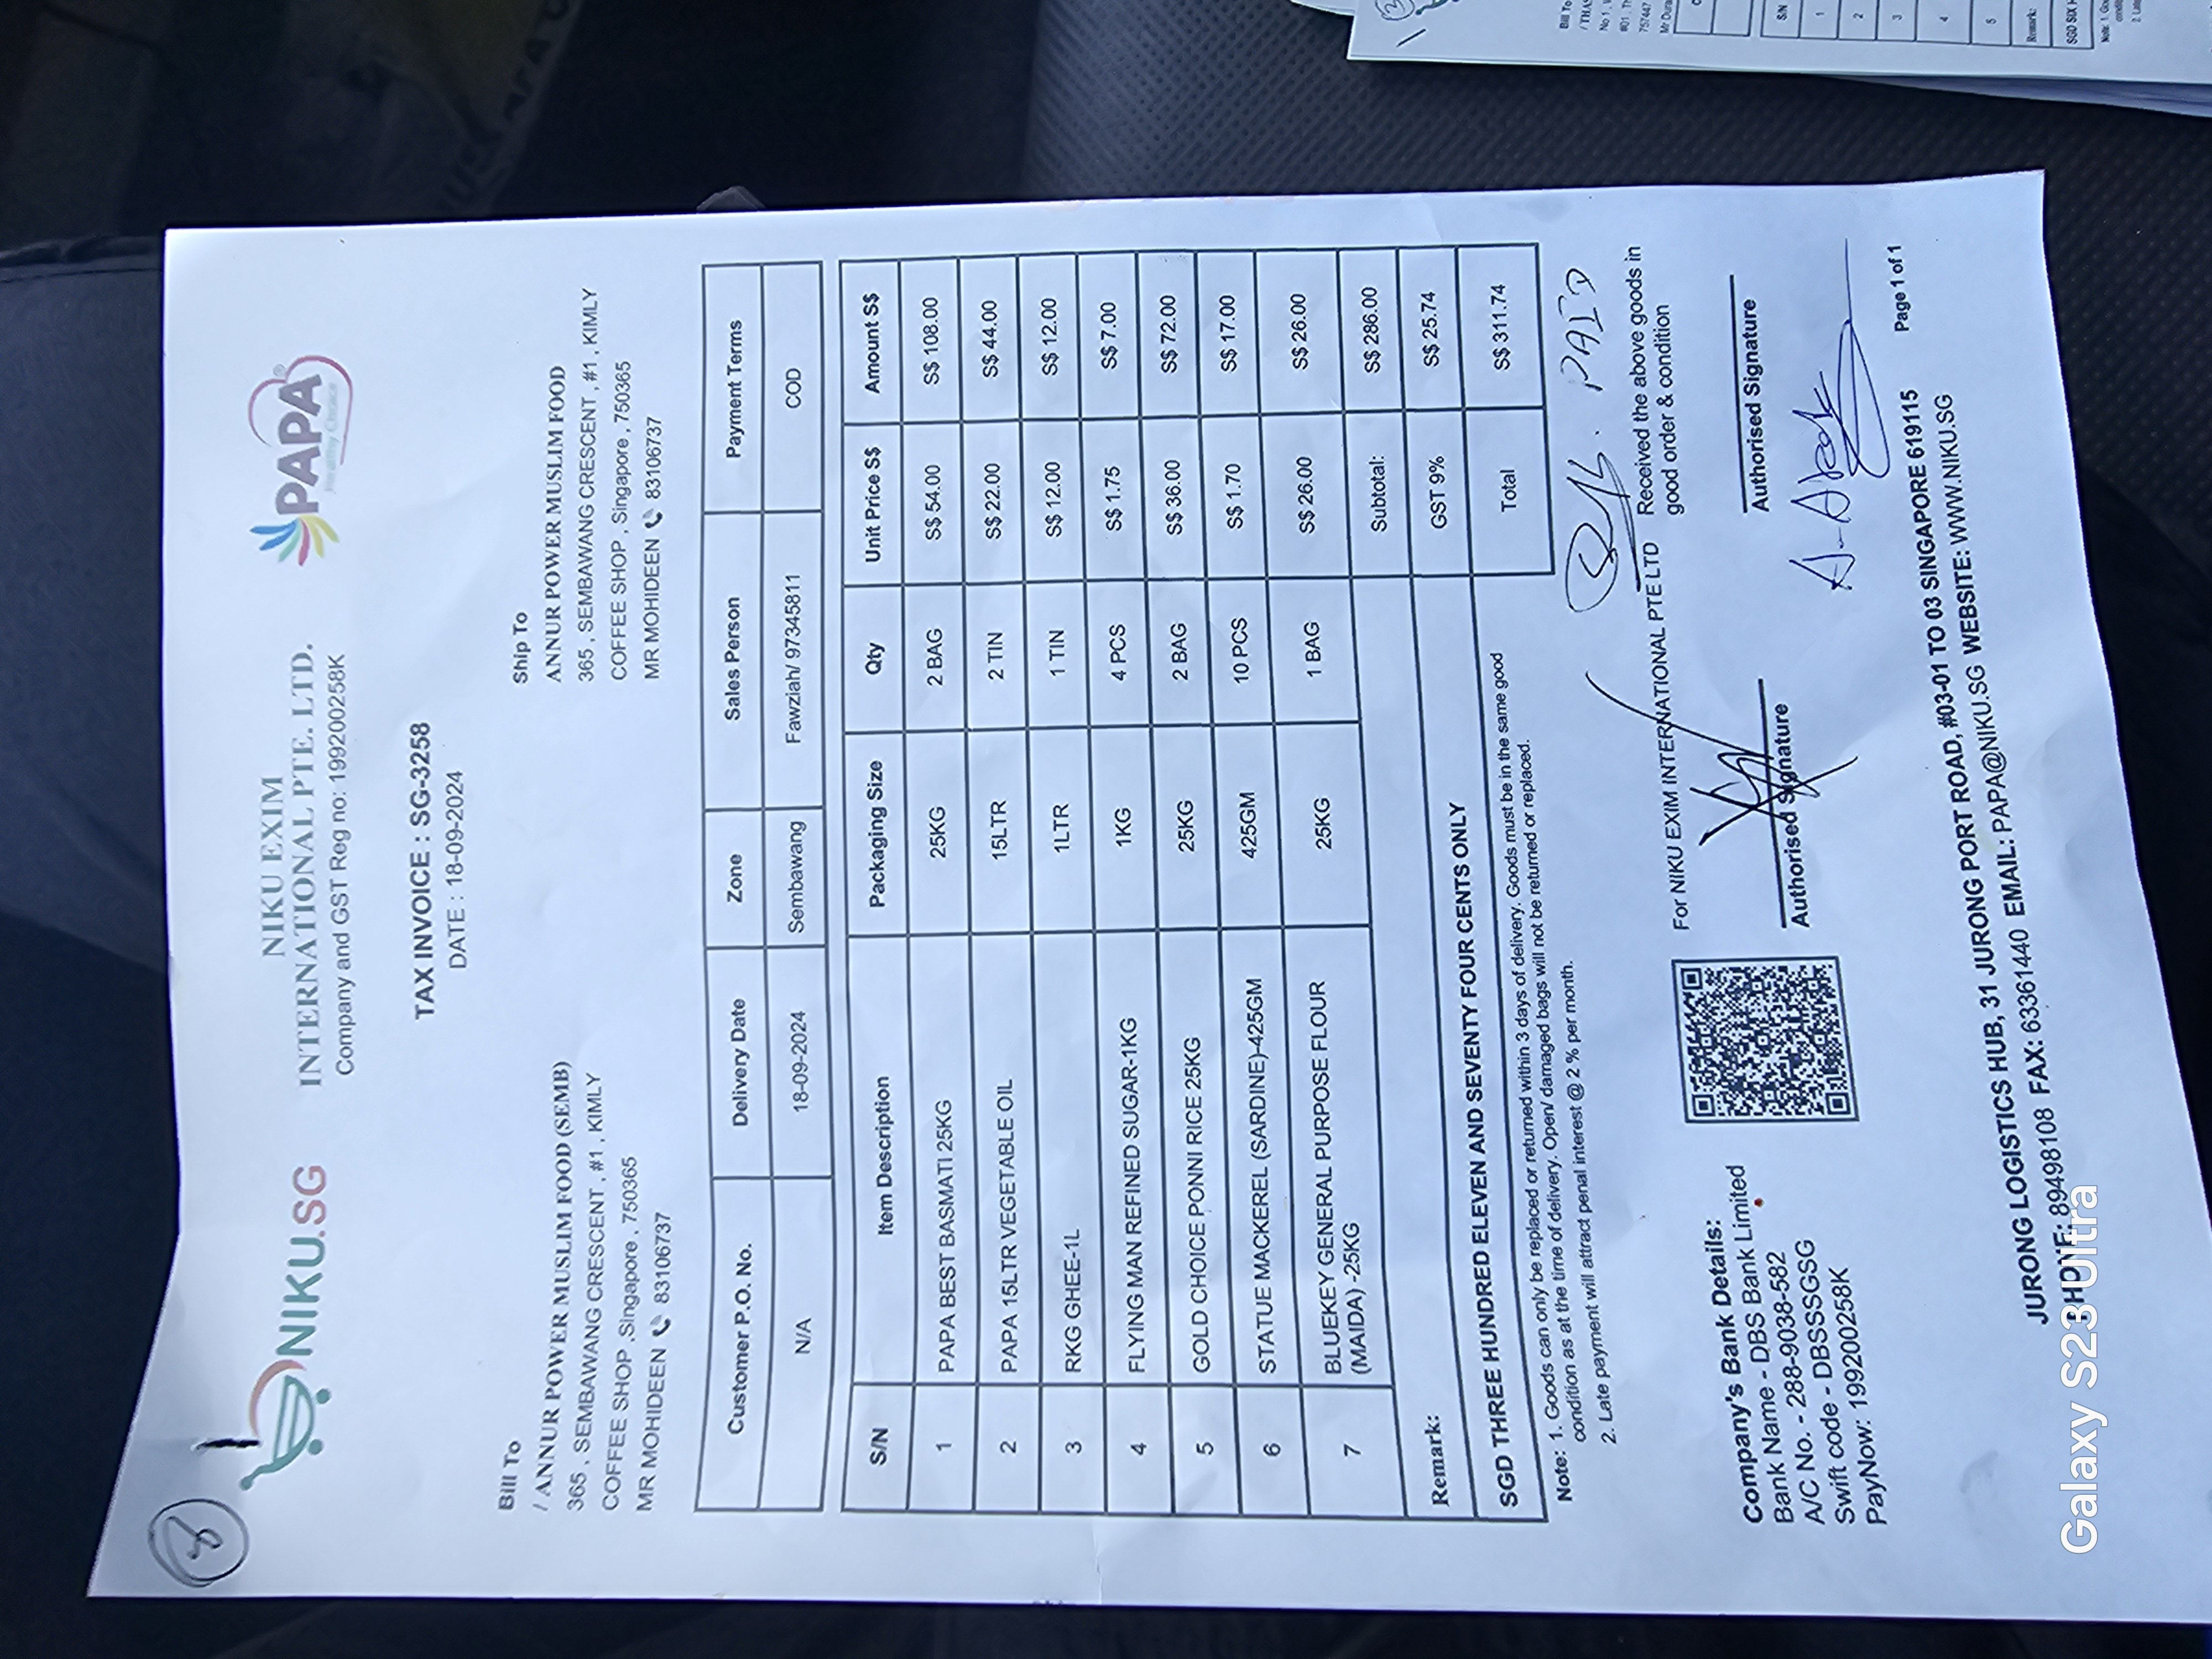 8
NIKU.SG
NIKU EXIM
INTERNATIONAL PTE. LTD.
Company and GST Reg no: 199200258K
PAPA®
Healthy Choice
TAX INVOICE : SG-3258
DATE : 18-09-2024
Bill To
/ ANNUR POWER MUSLIM FOOD (SEMB)
365 , SEMBAWANG CRESCENT , #1 , KIMLY
COFFEE SHOP ,Singapore , 750365
MR MOHIDEEN 83106737
Ship To
ANNUR POWER MUSLIM FOOD
365 , SEMBAWANG CRESCENT , #1 , KIMLY
COFFEE SHOP , Singapore , 750365
MR MOHIDEEN 83106737
Customer P.O. No. Delivery Date Zone Sales Person Payment Terms
N/A 18-09-2024 Sembawang Fawziah/ 97345811 COD
S/N Item Description Packaging Size Qty Unit Price S$ Amount S$
1 PAPA BEST BASMATI 25KG 25KG 2 BAG S$ 54.00 S$ 108.00
2 PAPA 15LTR VEGETABLE OIL 15LTR 2 TIN S$ 22.00 S$ 44.00
3 RKG GHEE-1L 1LTR 1 TIN S$ 12.00 S$ 12.00
4 FLYING MAN REFINED SUGAR-1KG 1KG 4 PCS S$ 1.75 S$ 7.00
5 GOLD CHOICE PONNI RICE 25KG 25KG 2 BAG S$ 36.00 S$ 72.00
6 STATUE MACKEREL (SARDINE)-425GM 425GM 10 PCS S$ 1.70 S$ 17.00
7 BLUEKEY GENERAL PURPOSE FLOUR 25KG 1 BAG S$ 26.00 S$ 26.00
(MAIDA) -25KG
Subtotal: S$ 286.00
Remark: GST 9% S$ 25.74
SGD THREE HUNDRED ELEVEN AND SEVENTY FOUR CENTS ONLY Total S$ 311.74
Note: 1. Goods can only be replaced or returned within 3 days of delivery. Goods must be in the same good
condition as at the time of delivery. Open/ damaged bags will not be returned or replaced.
2. Late payment will attract penal interest @ 2 % per month.
PAID
Company's Bank Details:
Bank Name - DBS Bank Limited
A/C No. - 288-9038-582
Swift code - DBSSSGSG
PayNow: 199200258K
For NIKU EXIM INTERNATIONAL PTE LTD
Authorised Signature
Received the above goods in
good order & condition
Authorised Signature
Page 1 of 1
JURONG LOGISTICS HUB, 31 JURONG PORT ROAD, #03-01 TO 03 SINGAPORE 619115
PHONE: 89498108 FAX: 63361440 EMAIL: PAPA@NIKU.SG WEBSITE: WWW.NIKU.SG
Galaxy S23 Ultra
Bill To
757447
S/N
1
2
3
4
5
Remark: